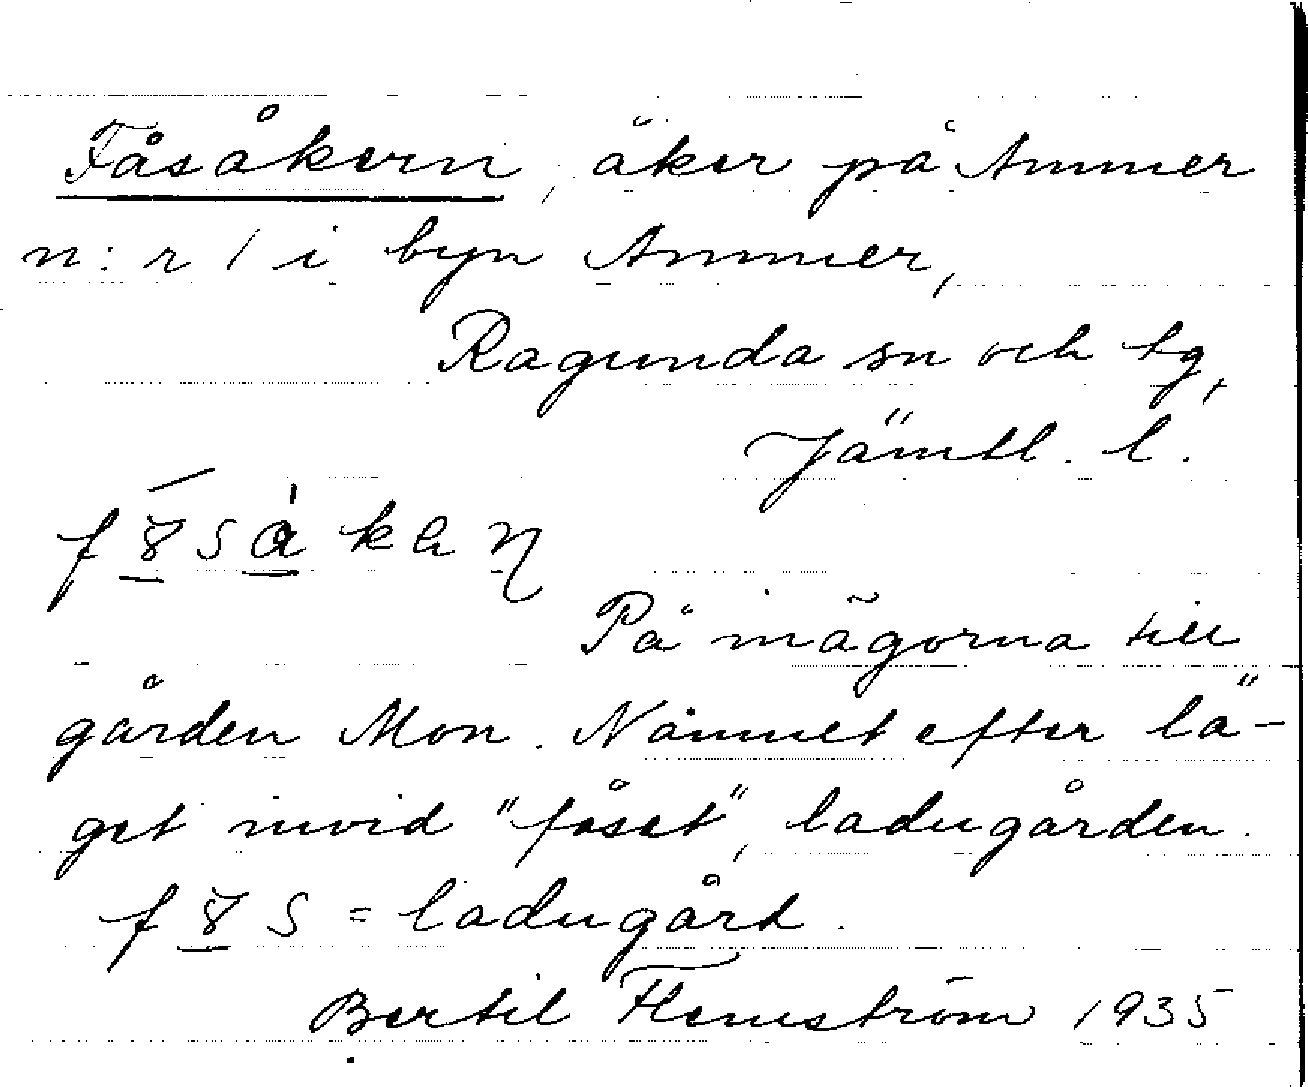 Fåsåkern, åker på Ammer
n:r 1 i byn Ammer,
Ragunda sn och tg,
Jämtl. l.
På inägorna till
gården Mon. Namnet efter lä-
get invid "fåset", ladugården.
= ladugård.
Bertil Flemström 1935